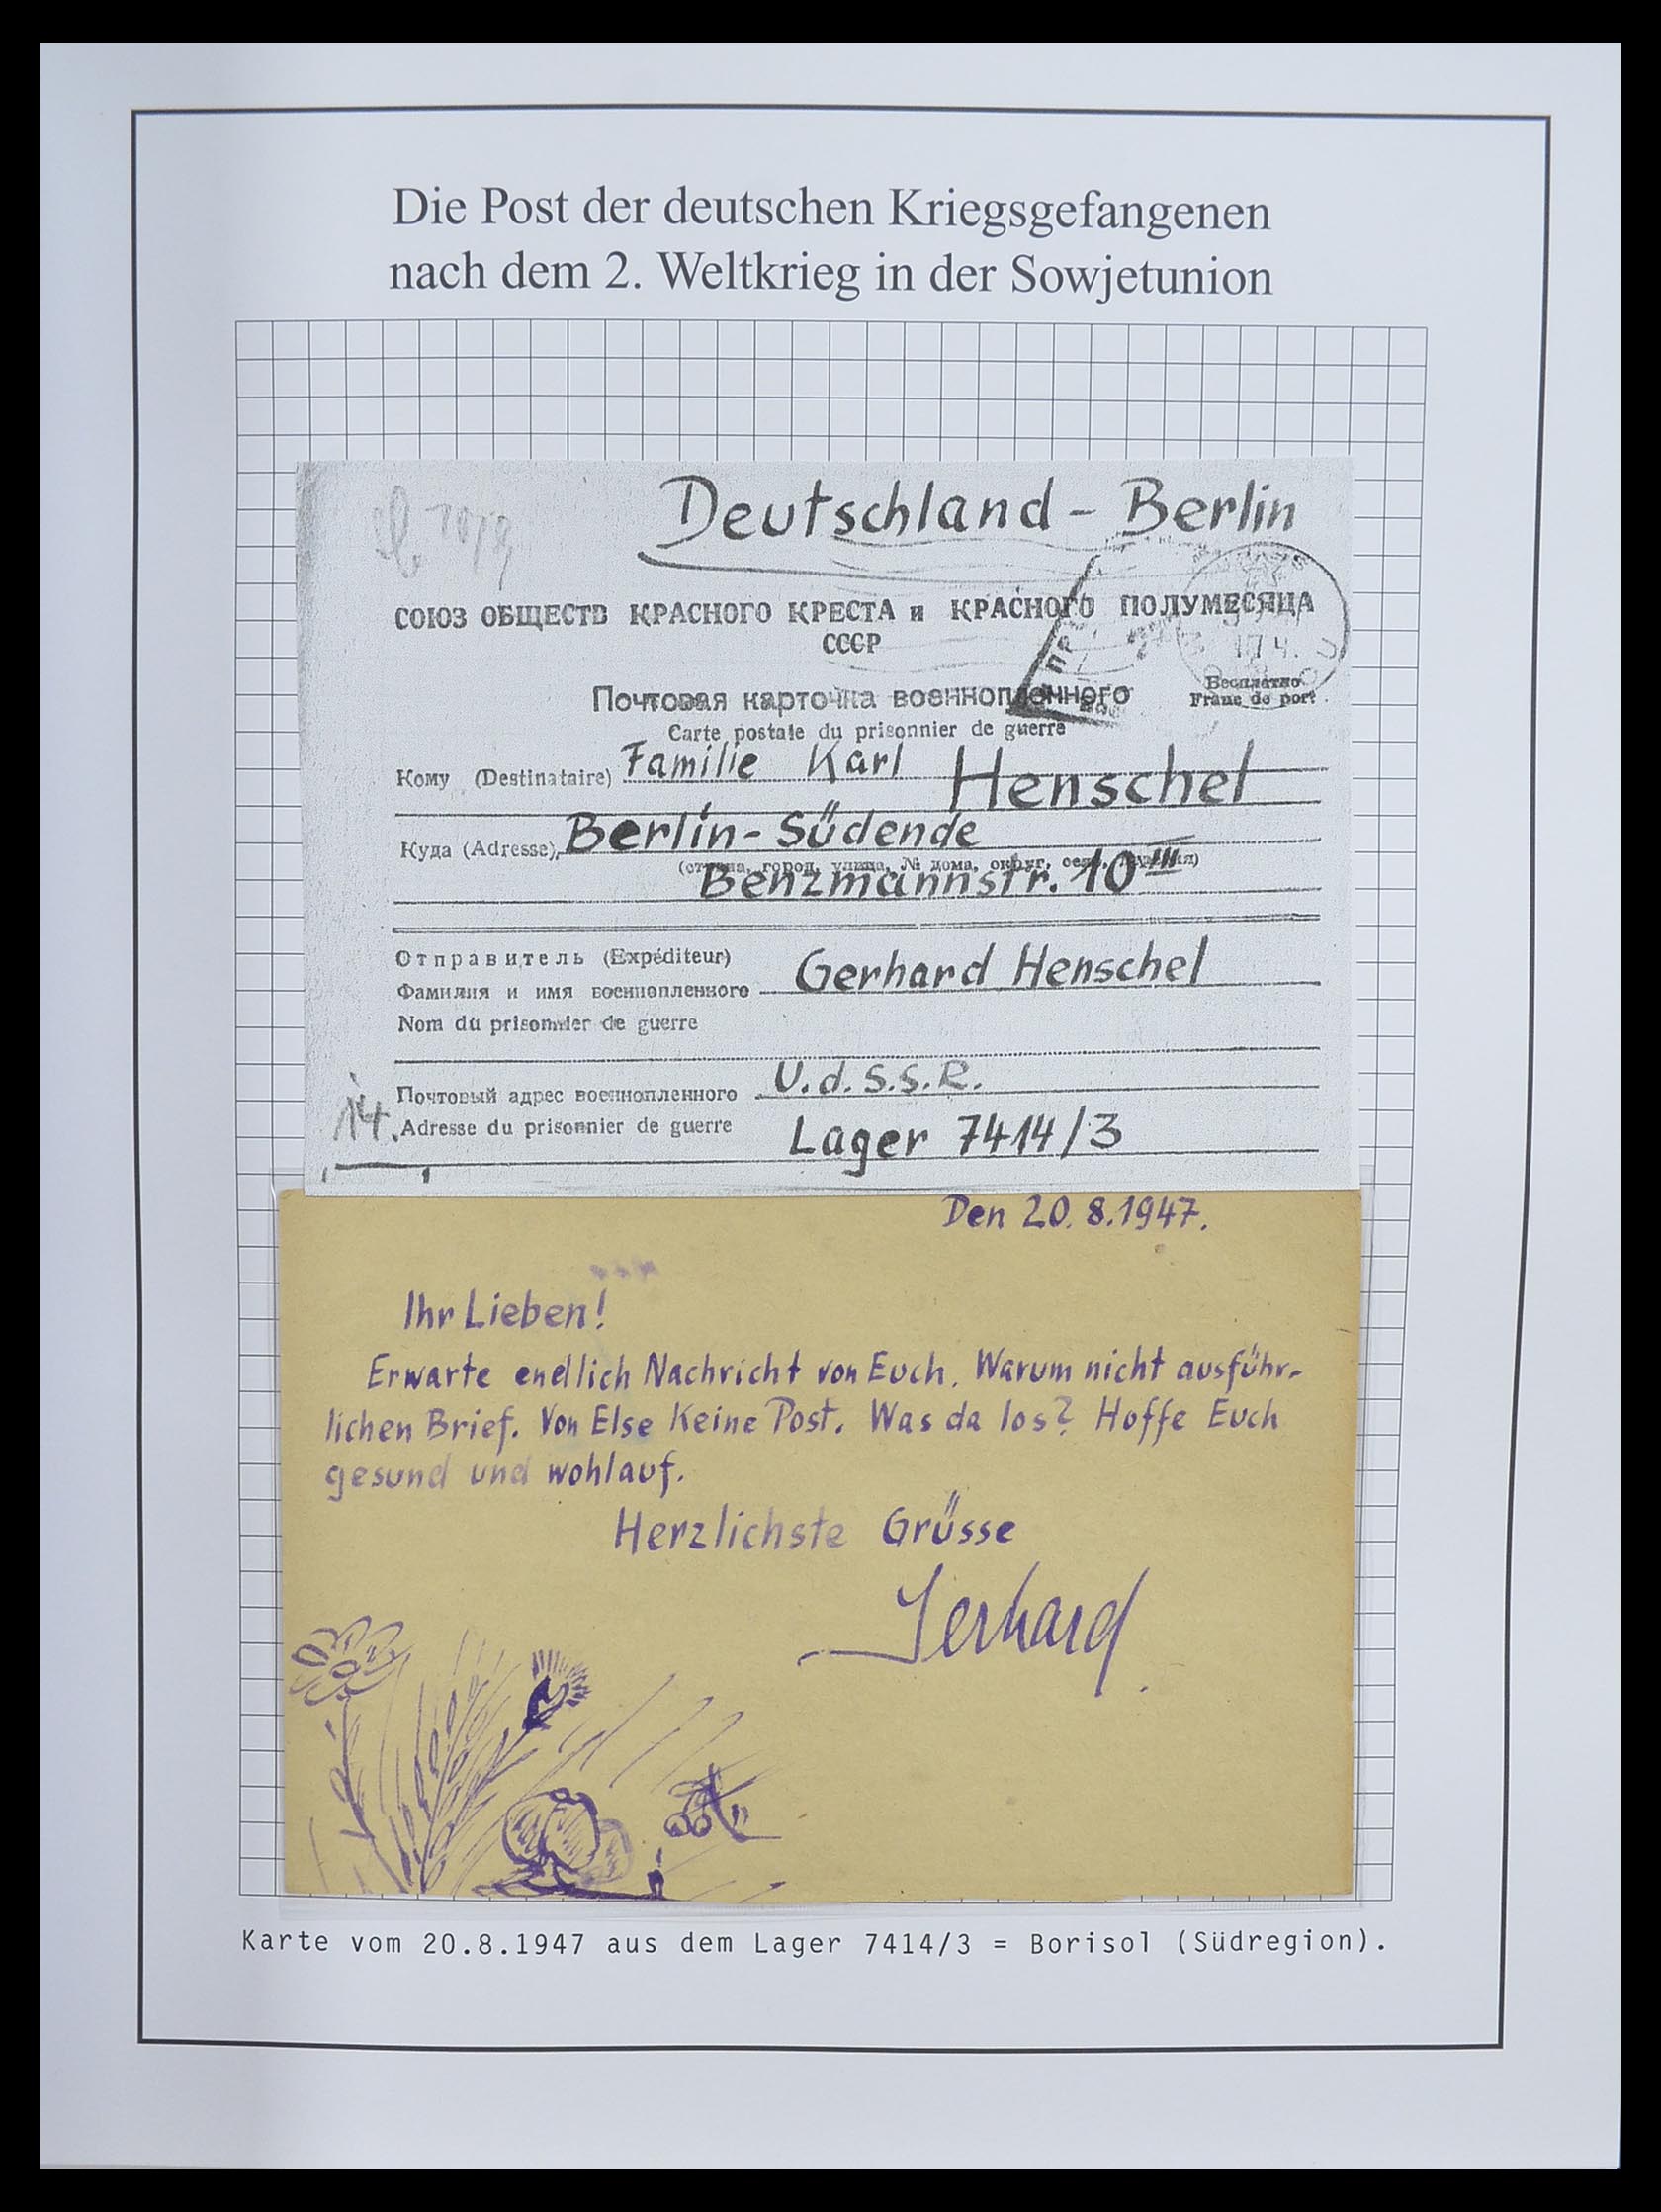 Die Post der deutschen Kriegsgefangenen
nach dem 2. Weltkrieg in der Sowjetunion
Deutschland - Berlin
СОЮЗ ОБЩЕСТВ КРАСНОГО КРЕСТА и КРАСНОГО ПОЛУМЕСЯЦА
СССР
Бесплатно
Franc de port
Почтовая карточка военнопленного
Carte postale du prisonnier de guerre
Кому (Destinataire) Familie Karl Henschel
Куда (Adresse) Berlin-Südende
(страна, город, улица, № дома, округ, село, деревня)
Benzmannstr. 10 III
Отправитель (Expéditeur)
Фамилия и имя военнопленного Gerhard Henschel
Nom du prisonnier de guerre
Почтовый адрес военнопленного U.d.S.S.R.
14. Adresse du prisonnier de guerre Lager 7414/3
Den 20.8.1947.
Ihr Lieben!
Erwarte endlich Nachricht von Euch. Warum nicht ausführ-
lichen Brief. Von Else Keine Post. Was da los? Hoffe Euch
gesund und wohlauf.
Herzlichste Grüsse
Gerhard
Karte vom 20.8.1947 aus dem Lager 7414/3 = Borisol (Südregion).